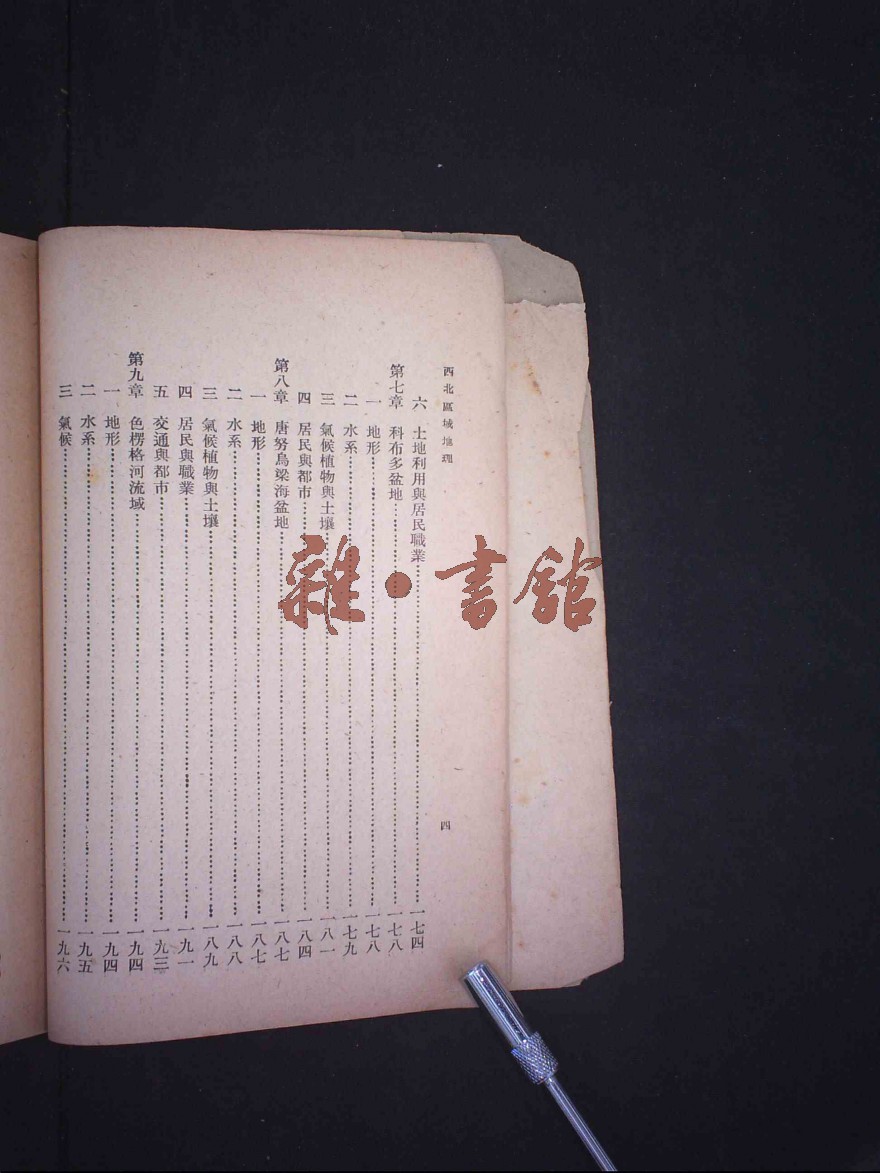 西北區域地理
四
六 土地利用與居民職業……一七四
第七章 科布多盆地……一七八
一 地形……一七八
二 水系……一七九
三 氣候植物與土壤……一八一
四 居民與都市……一八四
第八章 唐努烏梁海盆地……一八七
一 地形……一八七
二 水系……一八八
三 氣候植物與土壤……一八九
四 居民與職業……一九一
五 交通與都市……一九三
第九章 色楞格河流域……一九四
一 地形……一九四
二 水系……一九五
三 氣候……一九六
雜·書館